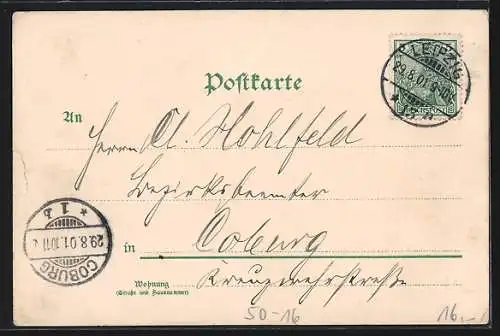 LEIPZIG
29.8.01. 9-10
Postkarte
An
Herrn Cl. Hohlfeld
Bezirksbeamter
in Coburg
Wohnung
(Straße und Hausnummer)
Kreuzwehrstraße
COBURG
29.8.01.
1 b
50-16
16.-